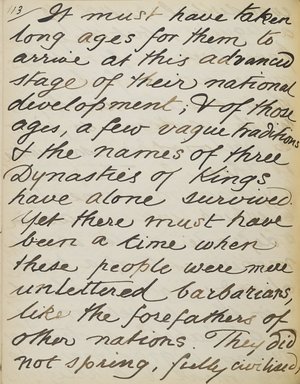 113
It must have taken
long ages for them to
arrive at this advanced
stage of their national
development; & of those
ages, a few vague traditions
& the names of three
Dynasties of Kings
have alone survived.
Yet there must have
been a time when
these people were mere
unlettered barbarians,
like the forefathers of
other nations. They did
not spring, fully civilised,